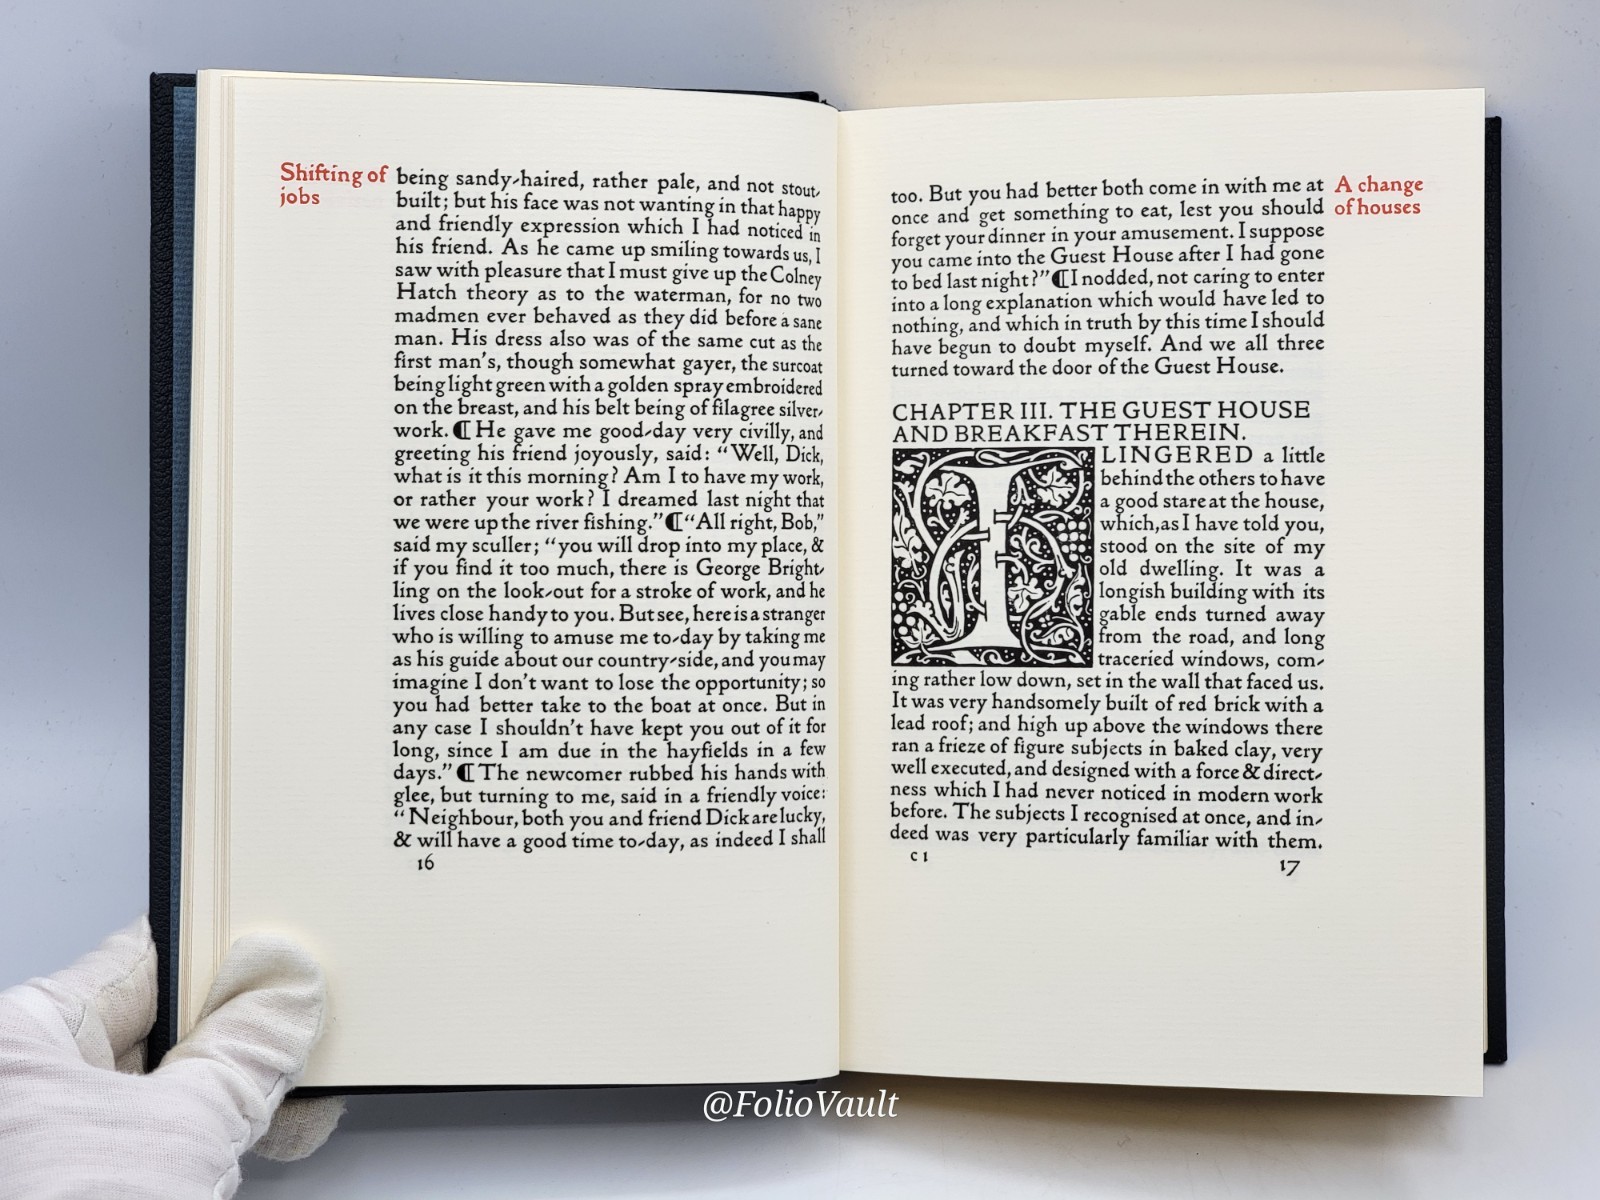 Shifting of
jobs
being sandy-haired, rather pale, and not stout-
built; but his face was not wanting in that happy
and friendly expression which I had noticed in
his friend. As he came up smiling towards us, I
saw with pleasure that I must give up the Colney
Hatch theory as to the waterman, for no two
madmen ever behaved as they did before a sane
man. His dress also was of the same cut as the
first man's, though somewhat gayer, the surcoat
being light green with a golden spray embroidered
on the breast, and his belt being of filagree silver-
work. ¶ He gave me good-day very civilly, and
greeting his friend joyously, said: “Well, Dick,
what is it this morning? Am I to have my work,
or rather your work? I dreamed last night that
we were up the river fishing.” ¶ “All right, Bob,”
said my sculler; “you will drop into my place, &
if you find it too much, there is George Bright-
ling on the look-out for a stroke of work, and he
lives close handy to you. But see, here is a stranger
who is willing to amuse me to-day by taking me
as his guide about our country-side, and you may
imagine I don't want to lose the opportunity; so
you had better take to the boat at once. But in
any case I shouldn't have kept you out of it for
long, since I am due in the hayfields in a few
days.” ¶ The newcomer rubbed his hands with
glee, but turning to me, said in a friendly voice:
“Neighbour, both you and friend Dick are lucky,
& will have a good time to-day, as indeed I shall
16
A change
of houses
too. But you had better both come in with me at
once and get something to eat, lest you should
forget your dinner in your amusement. I suppose
you came into the Guest House after I had gone
to bed last night?” ¶ I nodded, not caring to enter
into a long explanation which would have led to
nothing, and which in truth by this time I should
have begun to doubt myself. And we all three
turned toward the door of the Guest House.
CHAPTER III. THE GUEST HOUSE
AND BREAKFAST THEREIN.
I LINGERED a little
behind the others to have
a good stare at the house,
which, as I have told you,
stood on the site of my
old dwelling. It was a
longish building with its
gable ends turned away
from the road, and long
traceried windows, com-
ing rather low down, set in the wall that faced us.
It was very handsomely built of red brick with a
lead roof; and high up above the windows there
ran a frieze of figure subjects in baked clay, very
well executed, and designed with a force & direct-
ness which I had never noticed in modern work
before. The subjects I recognised at once, and in-
deed was very particularly familiar with them.
c 1
17
@FolioVault